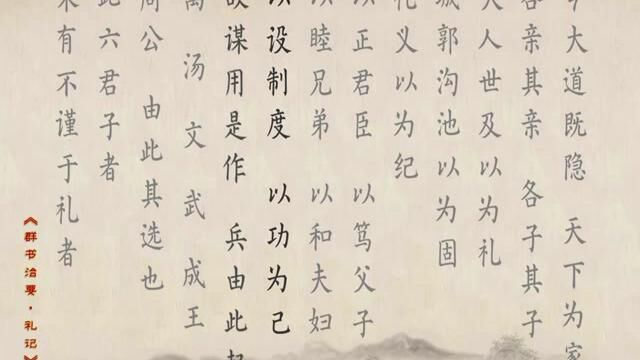 今大道既隐 天下为家
各亲其亲 各子其子
大人世及以为礼
城郭沟池以为固
礼义以为纪
以正君臣 以笃父子
以睦兄弟 以和夫妇
以设制度 以功为己
故谋用是作 兵由此起
禹 汤 文 武 成 王
周公 由此其选也
此六君子者
未有不谨于礼者
《群书治要，礼记》